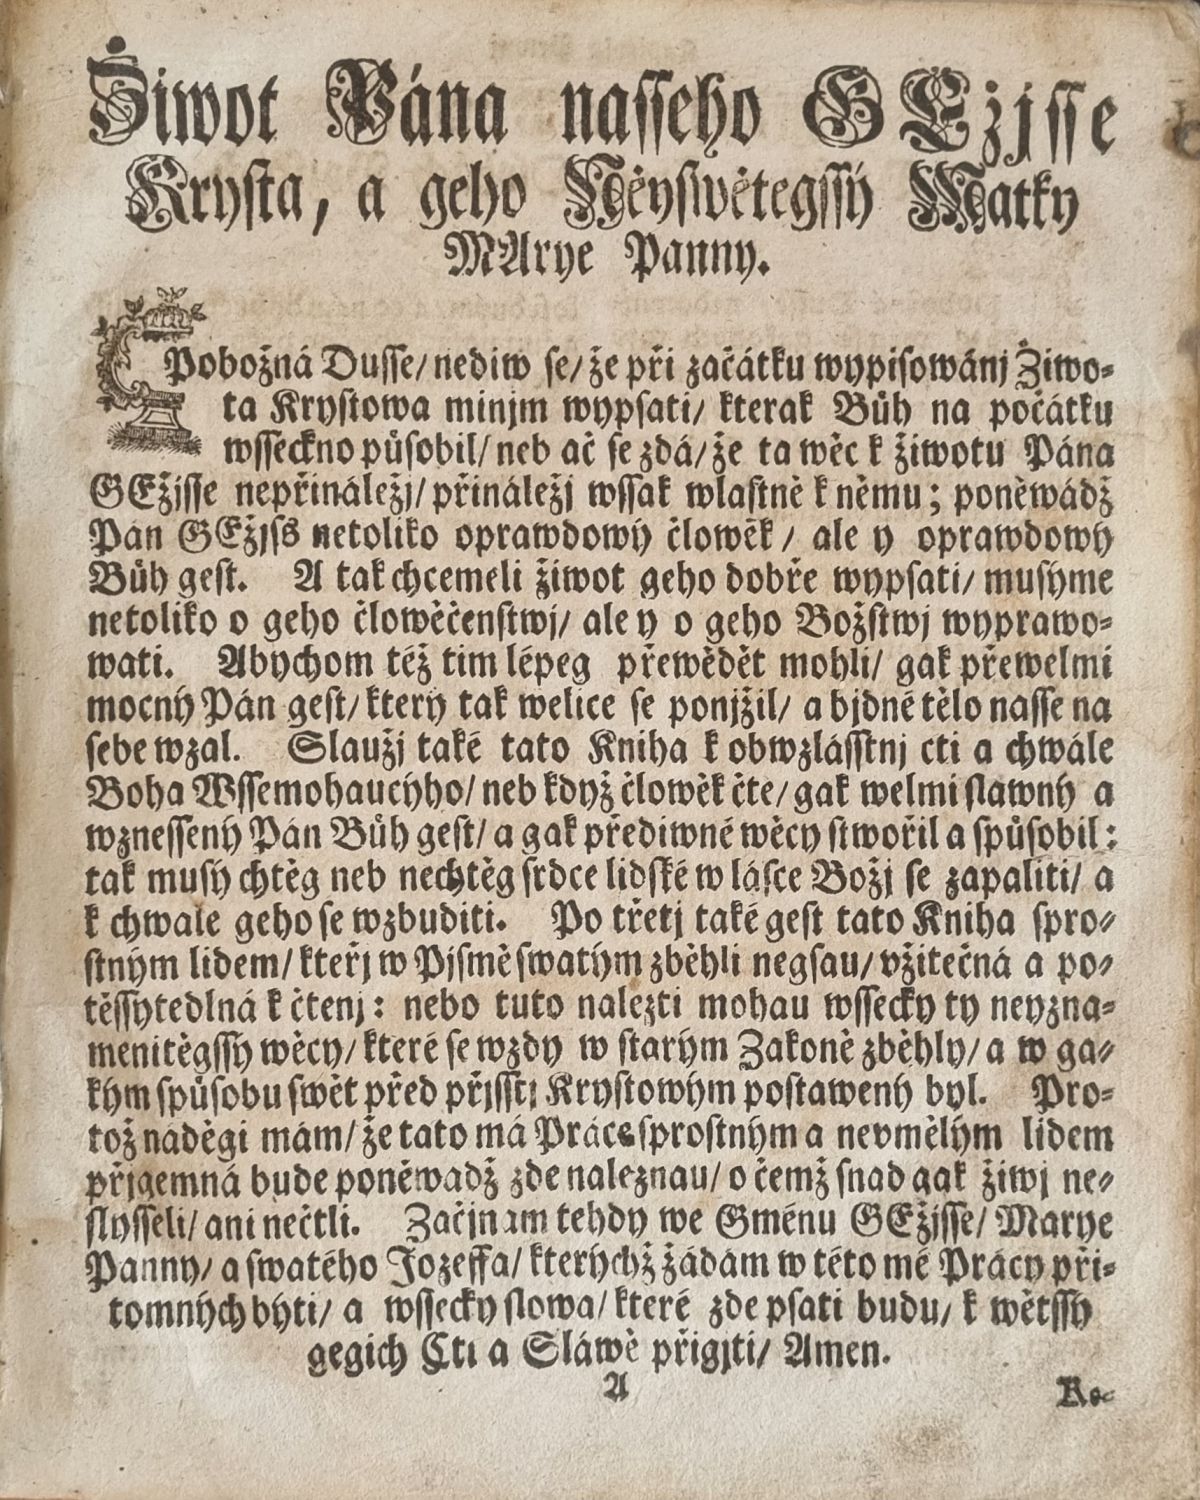 Žiwot Pána nasseho GEžjsse
Krysta, a geho Něyswětegssý Matky
MArye Panny.
Pobožná Dusse/ nediw se/ že při začátku wypisowánj Žiwo-
ta Krystowa minjm wypsati/ kterak Bůh na počátku
wsseckno působil/ neb ač se zdá/ že ta wěc k žiwotu Pána
GEžjsse nepřináležj/ přináležj wssak wlastně k němu; poněwádž
Pán GEžjss netoliko oprawdowý člowěk/ ale y oprawdowý
Bůh gest. A tak chcemeli žiwot geho dobře wypsati/ musýme
netoliko o geho člowěčenstwj/ ale y o geho Božstwj wyprawo-
wati. Abychom též tim lépeg přewědět mohli/ gak přewelmi
mocný Pán gest/ který tak welice se ponjžil/ a bjdné tělo nasse na
sebe wzal. Slaužj také tato Kniha k obwzlásstnj cti a chwále
Boha Wssemohaucýho/ neb když člowěk čte/ gak welmi slawný a
wznessený Pán Bůh gest/ a gak přediwné wěcy stwořil a spůsobil:
tak musý chtěg neb nechtěg srdce lidské w lásce Božj se zapaliti/ a
k chwale geho se wzbuditi. Po třetj také gest tato Kniha spro-
stným lidem/ kteřj w Pjsmě swatým zběhli negsau/ vžitečná a po-
těssytedlná k čtenj: nebo tuto nalezti mohau wssecky ty neyzna-
menitěgssý wěcy/ které se wzdy w starým Zakoně zběhly/ a w ga-
kým spůsobu swět před přjsstj Krystowým postawený byl. Pro-
tož náděgi mám/ že tato má Práce sprostným a nevmělým lidem
přjgemná bude poněwadž zde naleznau/ o čemž snad gak žiwj ne-
slysseli/ ani nečtli. Začjnam tehdy we Gménu GEžjsse/ Marye
Panny/ a swatého Jozeffa/ kterýchž žádám w této mé Prácy při-
tomných býti/ a wssecky slowa/ které zde psati budu/ k wětssý
gegich Cti a Sláwě přigjti/ Amen.
A
Ro-